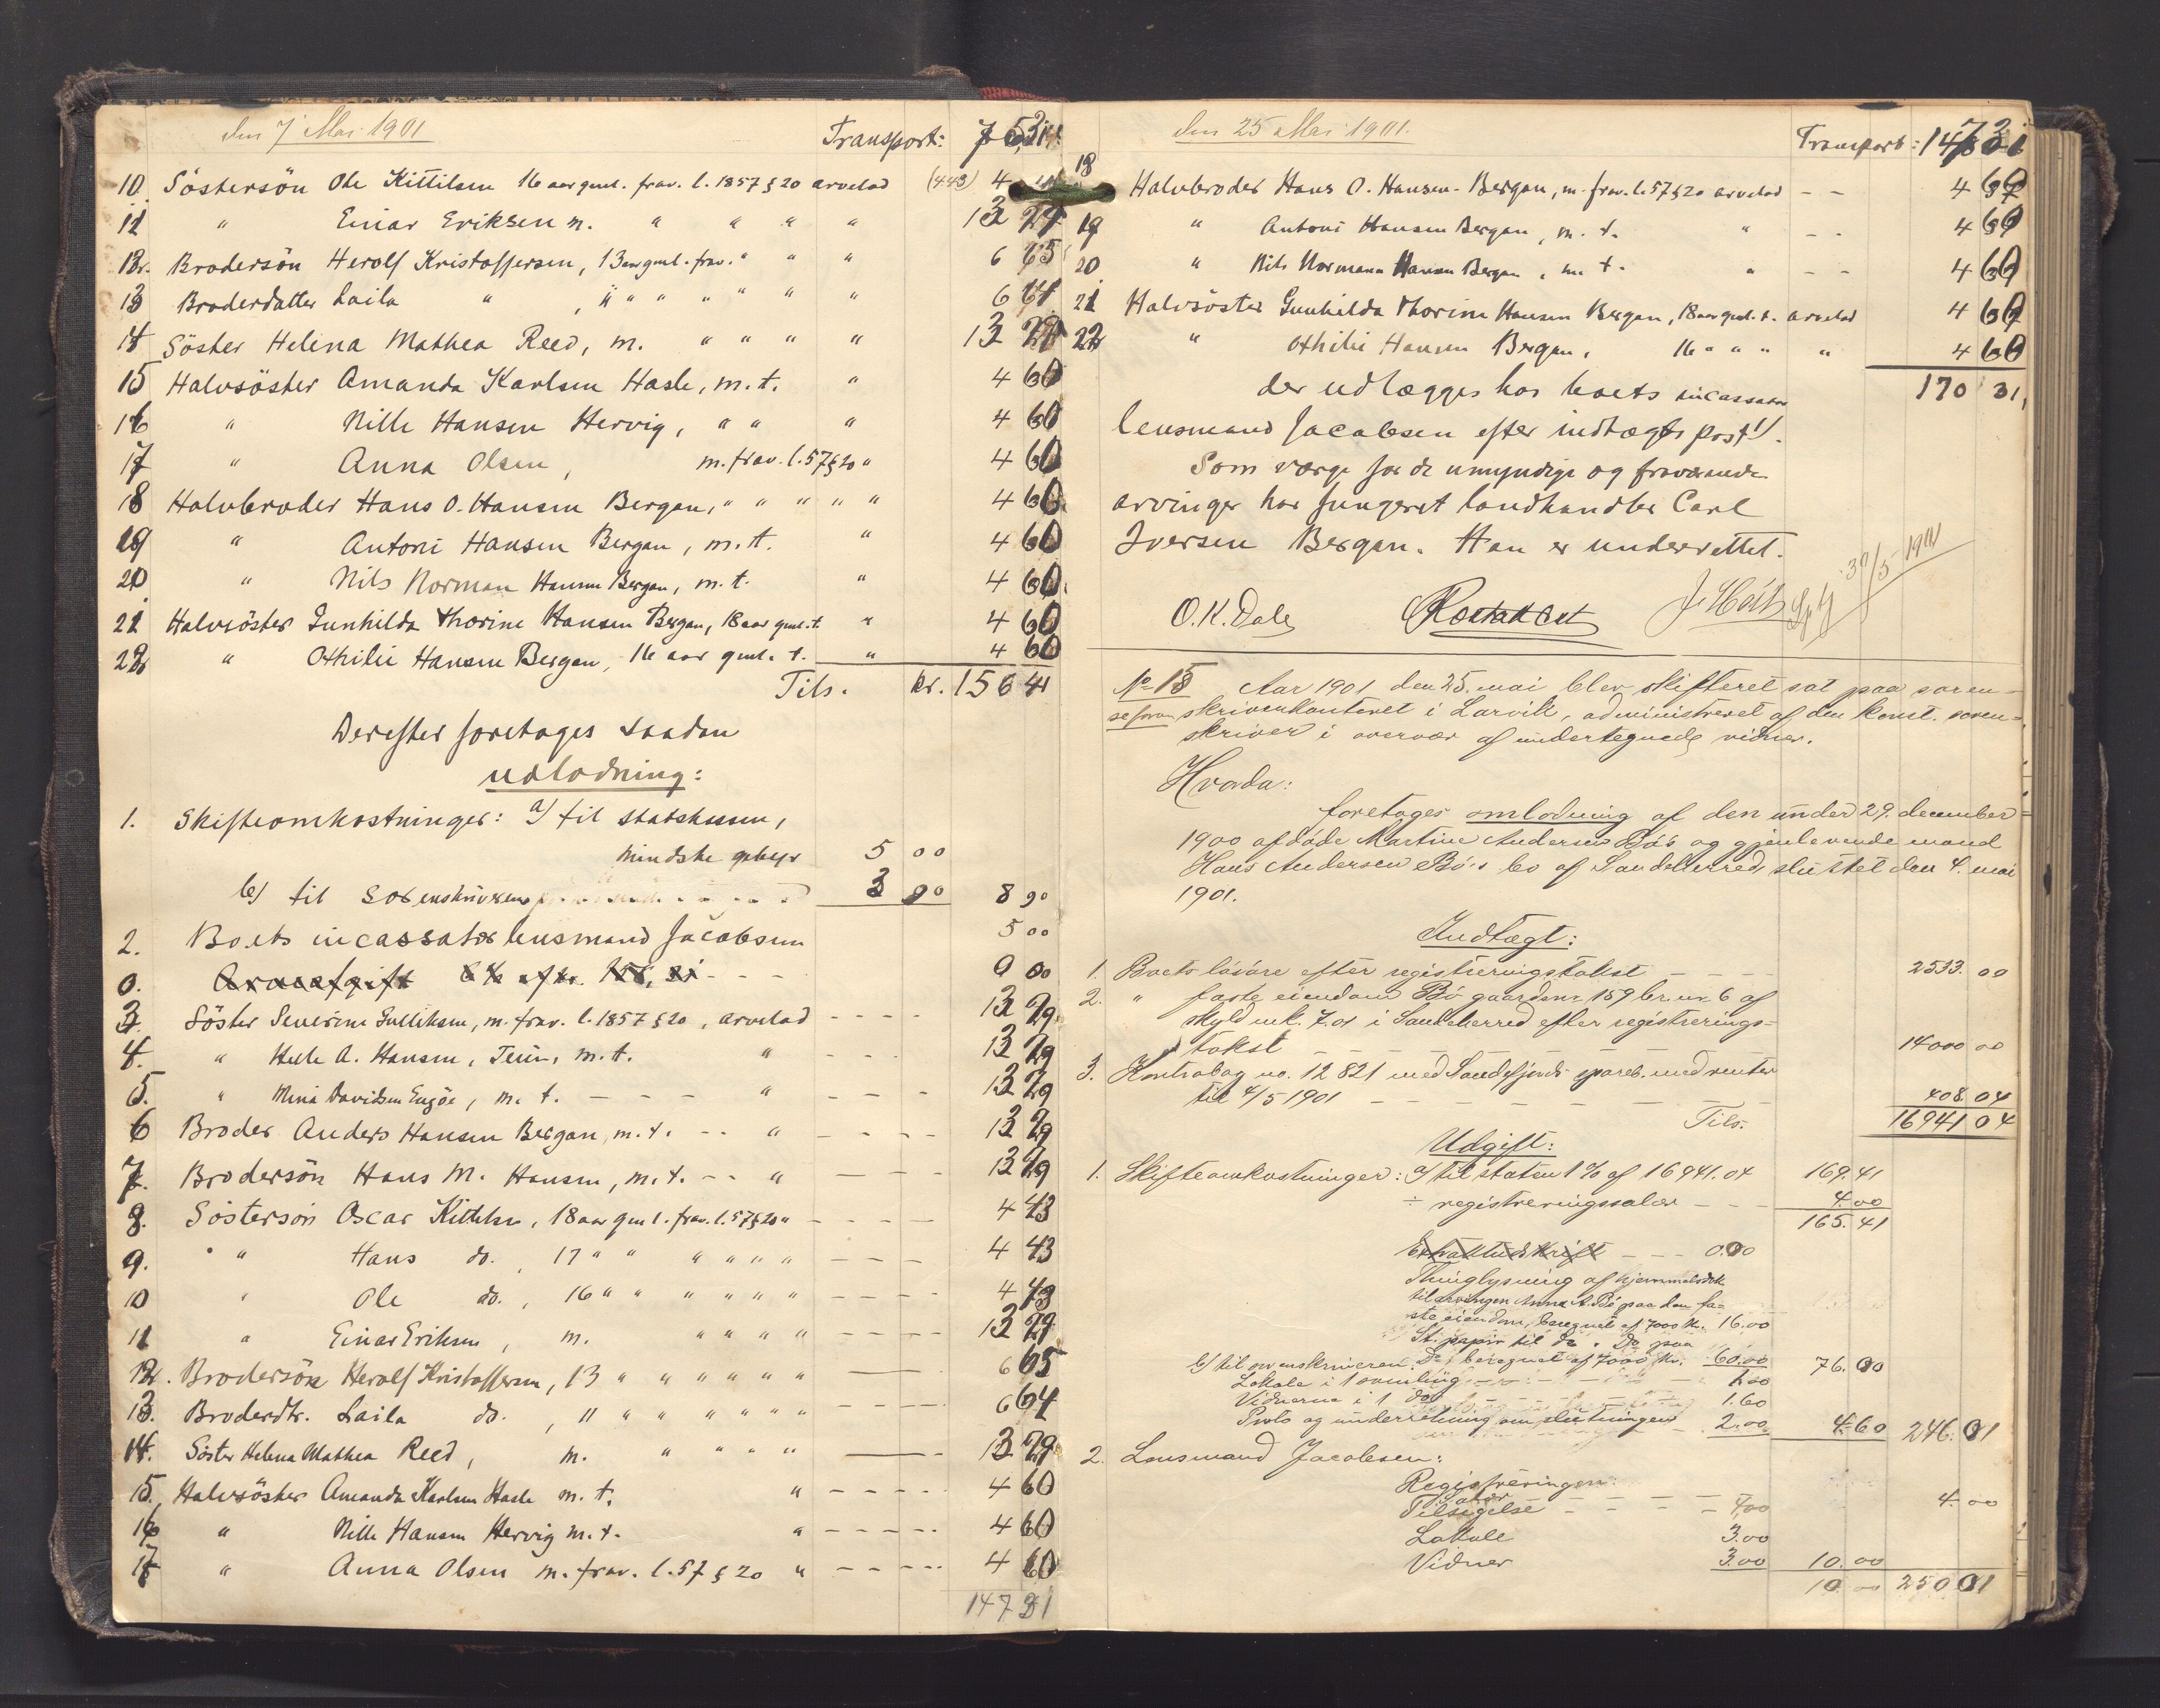 den 7 Mai 1901
Transport:
10 Söstersön Ole Kittilsen 16 aar gml. frav. l. 1857 § 20 arvelod (4 43) 4
11 " Einar Eriksen m. " " " " 13 29
12. Brodersön Herolf Kristoffersen, 13 aar gml. frav. " " " 6 65
13 Broderdatter Laila " , 11 " " " " " " 6 64
14 Söster Helena Mathea Reed, m. " " " " 13 29
15 Halvsöster Amanda Karlsen Hasle, m. t. " 4 60
16 " Nille Hansen Hervig, " " " 4 60
17 " Anna Olsen, m. frav. l. 57 § 20 " 4 60
18 Halvbroder Hans O. Hansen Bergan, " " " " " 4 60
19 " Antoni Hansen Bergan, m. t. " 4 60
20 " Nils Norman Hansen Bergan, m. t. " 4 60
21 Halvsöster Gunhilda Thorine Hansen Bergan, 18 aar gml. t. " 4 60
22 " Othilie Hansen Bergan, 16 aar gml. t. " 4 60
Tils. kr. 156 41
Derefter foretages saadan
udlodning:
1. Skifteomkostninger: a/ til statskassen,
mindste gebyr 5 00
b/ til sorenskriveren 3 90 8 90
2. Boets incassator lensmand Jacobsen 5 00
0. Arveafgift 0 00
3. Söster Severine Gulliksen, m. frav. l. 1857 § 20, arvelod - - - - 13 29
4. " Helle A. Hansen, Teien, m. t. " - - - 13 29
5. " Mina Davidsen Engöe, m. t. - - - " - - - 13 29
6 Broder Anders Hansen Bergan, m. t. - - " - - - - 13 29
7. Brodersön Hans M. Hansen, m. t. - - " - - - 13 29
8. Söstersön Oscar Kittilsen, 18 aar gml. frav. l. 57 § 20 " - - - - 4 43
9. " Hans do. , 17 " " " " " " - - - 4 43
10 " Ole do. , 16 " " " " " " - - - - 4 43
11 " Einar Eriksen, m. " " " " - - - - 13 29
12. Brodersön Herolf Kristoffersen, 13 " " " " " " - - - - 6 65
13. Broderdtr. Laila do. , 11 " " " " " " - - - - 6 64
14. Söster Helena Mathea Reed, m. " " " " - - - 13 29
15. Halvsöster Amanda Karlsen Hasle m. t. " - - - - - 4 60
16 " Nille Hansen Hervig m. t. " - - - - - 4 60
17 " Anna Olsen m. frav. l. 57 § 20 " - - - - - 4 60
147 31
den 25 Mai 1901.
Transport: 147 31
18 Halvbroder Hans O. Hansen-Bergan, m. frav. l. 57 § 20 arvelod - - 4 60
19 " Antoni Hansen Bergan, m. t. " - - 4 60
20 " Nils Normann Hansen Bergan, m. t. " - - 4 60
21 Halvsöster Gunhilda Thorine Hansen Bergan, 18 aar gml. t. arvelod 4 60
22 " Othilie Hansen Bergan, 16 " " " " 4 60
170 31
der udlægges hos boets incassator
lensmand Jacobsen efter indtægts post 1/.
Som værge for de umyndige og fraværende
arvinger har fungeret landhandler Carl
Iversen Bergan. Han er underrettet.
O. K. Dale
30/5 1901
No 15 Aar 1901 den 25. mai blev skifteret sat paa soren-
se foran skriverkontoret i Larvik, administreret af den konst. soren-
skriver i overvær af undertegnede vidner.
Hvorda:
foretoges omlodning af den under 29. december
1900 afdøde Martine Andersen Bö's og gjenlevende mand
Hans Andersen Bö's bo af Sandeherred, sluttet den 4. mai
1901.
Indtægt:
1. Boets lösöre efter registreringstakst - - - 2533. 00
2. " faste eiendom Bö gaardsnr. 159 br. nr. 6 af
skyld mk. 7.01 i Sandeherred efter registrerings-
takst - - - 14000 00
3. Kontrabog no. 12821 med Sandefjords spareb. med renter
til 4/5 1901 - - - 408. 04
Tils. 16941 04
Udgift:
1. Skifteomkostninger: a/ til staten 1 % af 16941.04 169.41
÷ registreringssalær - - - 4.00
165.41
Extraktudskrift - - - 0.00
Thinglysning af hjemmelsdok.
til arvingen Anna A. Bö paa den fa-
ste eiendom, beregnet af 7000 kr. 16.00
St. papir til do. Do paa
Do, beregnet af 7000 kr. 60.00 76.00
b/ til sorenskriveren:
Lokale i 1 samling - - - 1.00
Vidnerne i 1 do - - - 1.60
Porto og underretning om slutningen 2.00 4.60 246.01
2. Lensmand Jacobsen:
Registreringen:
Salær - - - 4.00
Tilsigelse - - - 4.00
Lokale 3.00
Vidner 3.00 10.00
10.00 250 01